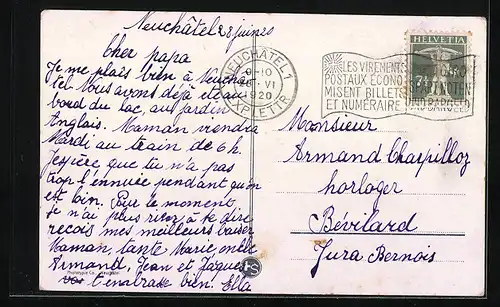 Neuchâtel 28 juin 20
Cher papa
Je me plais bien à Neuchâ-
tel Nous avons déjà été au
bord du lac, au jardin
Anglais. Maman viendra
Mardi au train de 6 h.
J'espère que tu n'a pas
trop l'ennuée pendant qu'on
est bin. Pour le moment
je n'ai plus rien à te dire
recois mes meilleurs baiser
Maman, tante Marie oncle
Armand, Jean et Jaques
t'enabrasse bien. Ella
Phototypie Co., Neuchâtel
NEUCHATEL 1
VI
1920
EXP. LETTR.
LES VIREMENTS
POSTAUX ECONO
MISENT BILLETS
ET NUMÉRAIRE
HELVETIA
7½
Monsieur
Armand Charpilloz
horloger
Bévilard
Jura Bernois